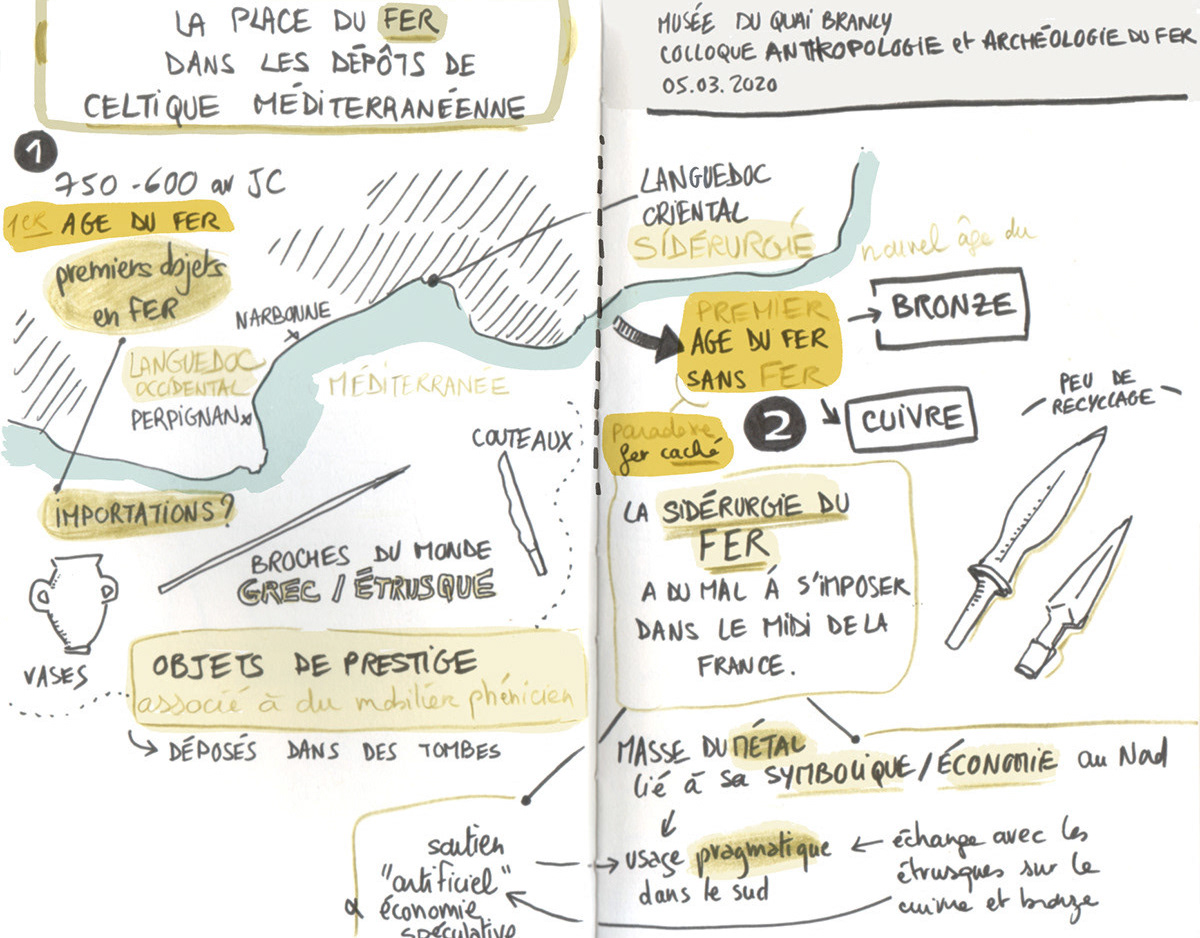 LA PLACE DU FER
DANS LES DÉPÔTS DE
CELTIQUE MÉDITERRANÉENNE
1
750 - 600 av JC
1ER AGE DU FER
premiers dojets
en FER
NARBONNE
LANGUEDOC
OCCIDENTAL
PERPIGNAN
MÉDITERRANÉE
COUTEAUX
IMPORTATIONS?
BROCHES DU MONDE
GREC / ÉTRUSQUE
VASES
OBJETS DE PRESTIGE
associé à du mobilier phénicien
DÉPOSÉS DANS DES TOMBES
soutien
"artificiel"
économie
spéculative
MUSÉE DU QUAI BRANLY
COLLOQUE ANTHROPOLOGIE et ARCHÉOLOGIE DU FER
05.03.2020
LANGUEDOC
ORIENTAL
SIDÉRURGIE
nouvel âge du
PREMIER
AGE DU FER
SANS FER
BRONZE
2
CUIVRE
paradoxe
fer caché
PEU DE
RECYCLAGE
LA SIDÉRURGIE DU
FER
A DU MAL À S'IMPOSER
DANS LE MIDI DE LA
FRANCE.
MASSE DU MÉTAL
lié à sa SYMBOLIQUE / ÉCONOMIE au Nord
usage pragmatique
dans le sud
échange avec les
étrusques sur le
cuivre et bronze